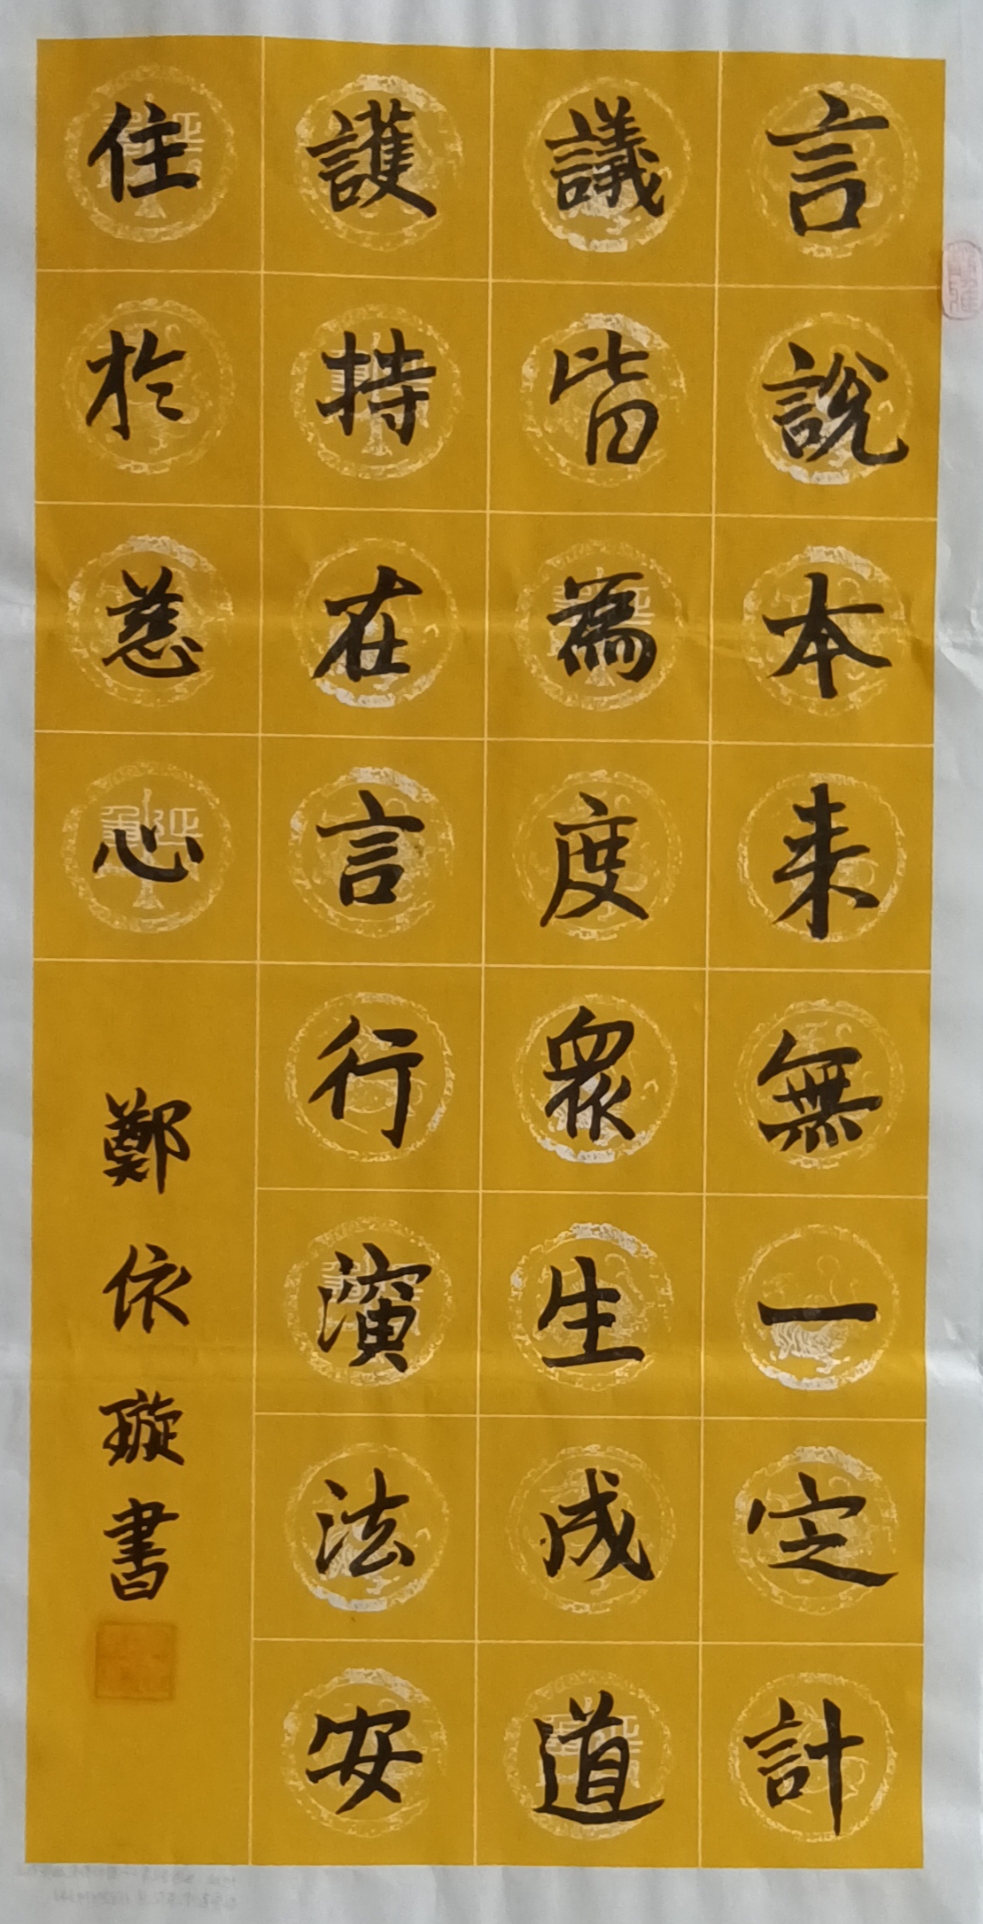 言說本來無一定計
議皆為度眾生成道
護持在言行演法安
住於慈心
鄭依璇書